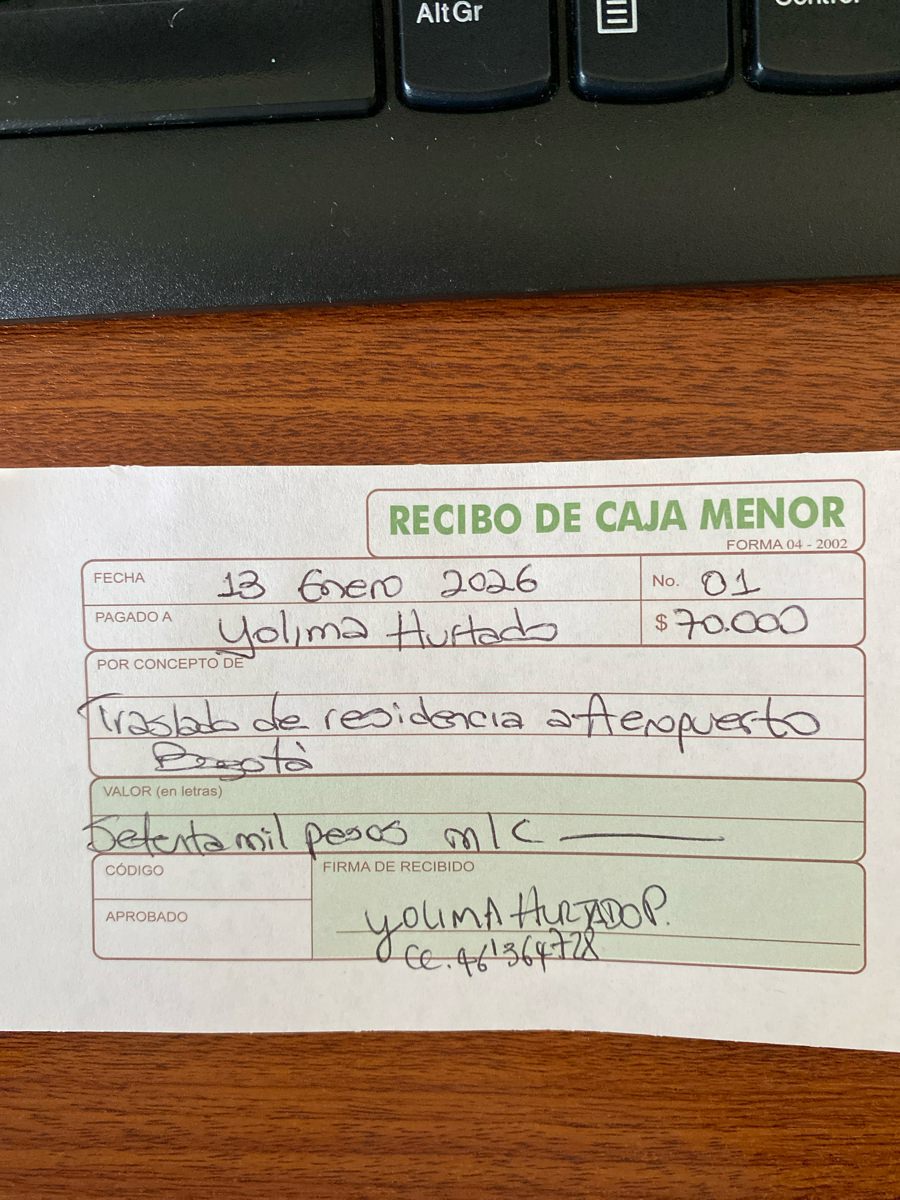 AltGr
Control
RECIBO DE CAJA MENOR
FORMA 04 - 2002
FECHA 13 Enero 2026 No. 01
PAGADO A Yolima Hurtado $ 70.000
POR CONCEPTO DE
Traslado de residencia a Aeropuerto
Bogotà
VALOR (en letras)
Setenta mil pesos m/c
CÓDIGO
FIRMA DE RECIBIDO
APROBADO
YOLIMA HURTADO P.
CC. 46'364728